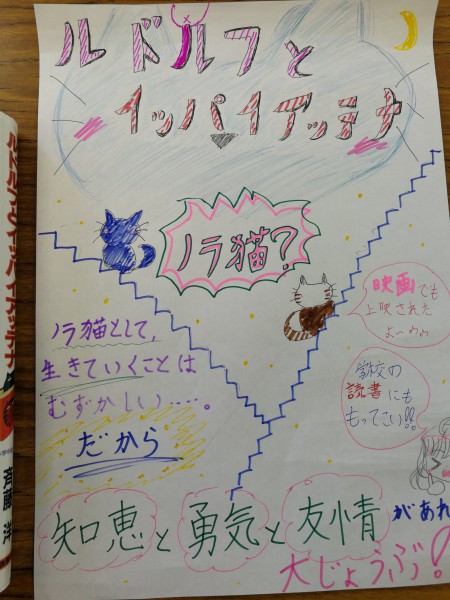 ルドルフと
イッパイアッテナ
ノラ猫?
映画でも
上映された
よ〜
ノラ猫として、
生きていくことは
むずかしい……。
だから
学校の
読書にも
もってこい!!
知恵と勇気と友情があれ
大じょうぶ!
ルドルフとイッパイアッテナ
斉藤 洋